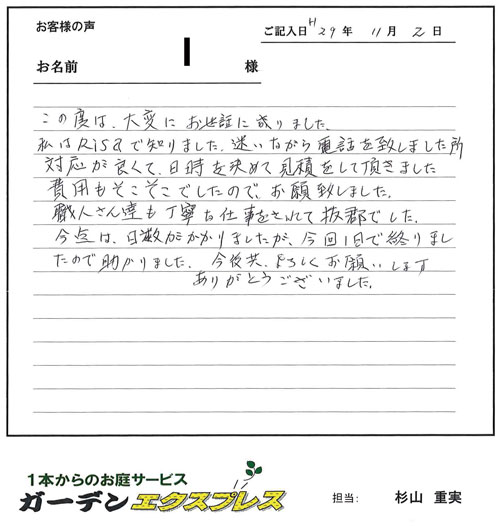 お客様の声
ご記入日 H29年 11月 2日
お名前 I 様
この度は、大変にお世話に成りました。
私はRisaで知りました。迷いながら電話を致しました所
対応が良くて、日時を決めて見積をして頂きました
費用もそこそこでしたので、お願致しました。
職人さん達も丁寧な仕事をされて抜群でした。
今迄は、日数がかかりましたが、今回1日で終りまし
たので助かりました。今後共、よろしくお願いします
ありがとうございました。
1本からのお庭サービス
ガーデンエクスプレス
担当: 杉山 重実